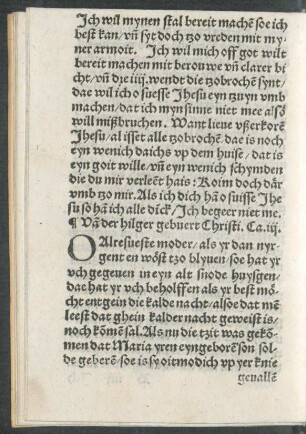 Jch wil mynen stal bereit machē soe ich
best kan/ vn̄ syt doch tzo vreden mit my-
ner armoit. Jch wil mich off got wilt
bereit machen mit berouwe vn̄ clarer bi
cht/ vn̄ dze iiij. wendt die tzobrochē synt/
dae wil ich o suesse Jhesu eyn tzuyn vmb
machen/ dat ich myn sinne niet mee alsō
will mißbruchen. Want lieue vßerkorē
Jhesu/ al isset alle tzobrochē. dae is noch
eyn wenich daichs vp dem huise/ dat is
eyn goit wille/ vn̄ eyn wenich schymden
die du mir verleēt hais: Koim doch dār
vmb tzo mir. Als ich dich hā o suisse Jhe
su so hā ich alle dick/ Jch begeer niet me.
¶ Vā der hilger gebuert Christi. Ca. iij.
O Alresueste moder/ als yr dan nyr-
gent en wōst tzo blyuen/ soe hat yr
vch gegeuen in eyn alt snode huysgen/
dac hat yr vch beholffen als yr best mō-
cht entgein die kalde nacht/ alsoe dat mē
leest dat ghein kalder nacht geweist is/
noch kōmē sal. Als nu die tzit was gekō-
men dat Maria yren eyngeborē son sol-
de geberē/ soe is sy oitmodich vp yer knie
geuallē